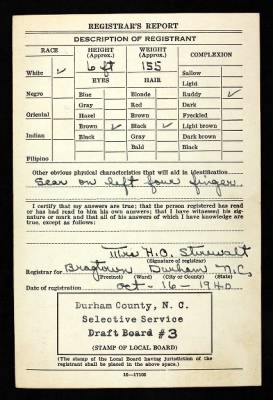 REGISTRAR'S REPORT
DESCRIPTION OF REGISTRANT
RACE HEIGHT (Approx.) WEIGHT (Approx.) COMPLEXION
White ✓ 6 ft 155 Sallow
EYES HAIR Light
Negro Blue Blonde Ruddy ✓
Gray Red Dark
Oriental Hazel Brown Freckled
Brown ✓ Black ✓ Light brown
Indian Black Gray Dark brown
Bald Black
Filipino
Other obvious physical characteristics that will aid in identification
Scar on left four finger
I certify that my answers are true; that the person registered has read
or has had read to him his own answers; that I have witnessed his sig-
nature or mark and that all of his answers of which I have knowledge are
true, except as follows:
Mrs H.O. Stirewalt
(Signature of registrar)
Registrar for Bragtown Durham N.C.
(Precinct) (Ward) (City or County) (State)
Date of registration Oct-16-1940
Durham County, N. C.
Selective Service
Draft Board #3
(STAMP OF LOCAL BOARD)
(The stamp of the Local Board having jurisdiction of the
registrant shall be placed in the above space.)
16—17105